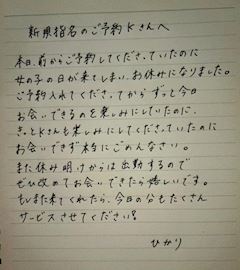 新規指名のご予約Kさんへ
本日、前からご予約してくださっていたのに
女の子の日が来てしまい、お休みになりました。
ご予約入れてくださってからずっと今日
お会いできるのを楽しみにしていたのに、
きっとKさんも楽しみにしてくださっていたのに
お会いできず本当にごめんなさい。
また休み明けからは出勤するので
ぜひ改めてお会いできたら嬉しいです。
もしまた来てくれたら、今日の分もたくさん
サービスさせてください!
ひかり